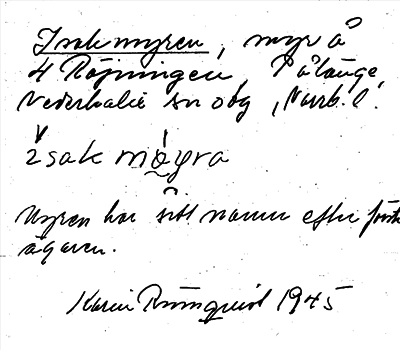 Isakmyren, myr å
4 Röjningen, Pålänge,
Nederkalix sn och Norrb. l.
isak møyra
Myren har sitt namn efter förste
ägaren.
Karin Runnquist 1945